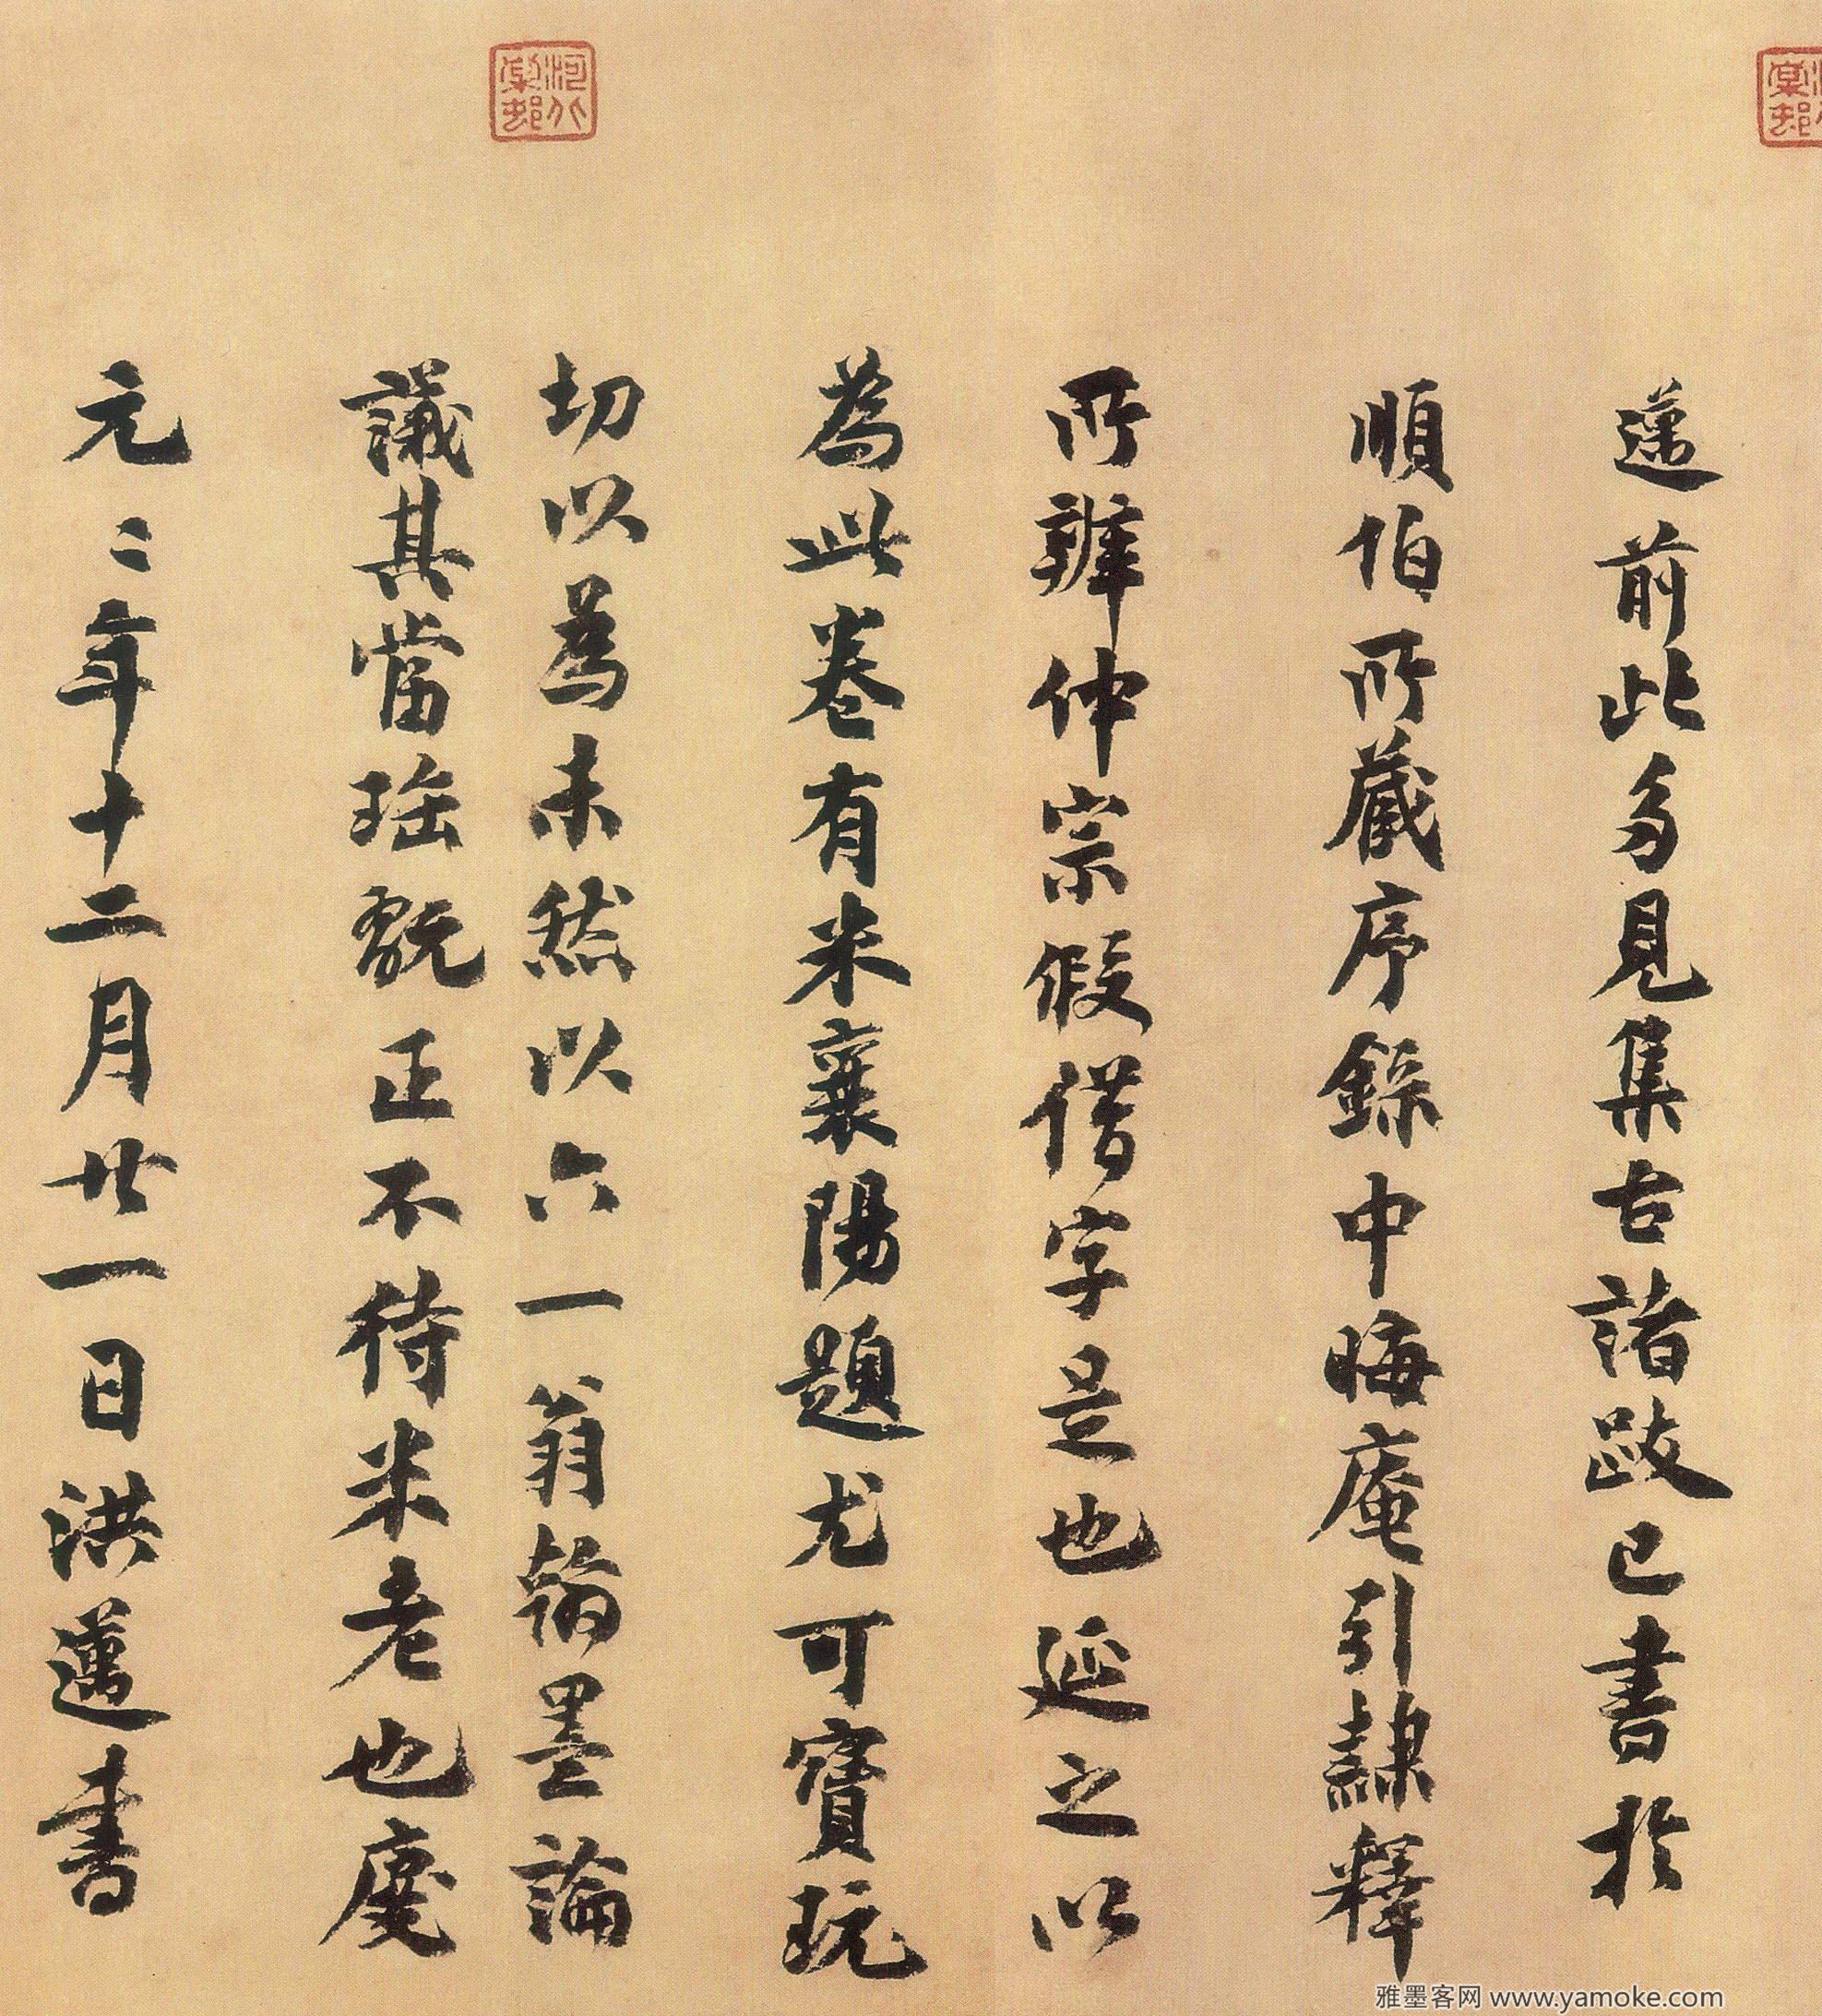 邁前此多見集古諸跋已書於
順伯所藏序錄中晦庵引隸釋
所辨仲宗假借字是也延之以
為此卷有米襄陽題尤可寶玩
切以為未然以六一翁翰墨論
議其當珤翫正不待米老也慶
元〻年十二月廿一日洪邁書
河北棠邨
棠邨
雅墨客网 www.yamoke.com